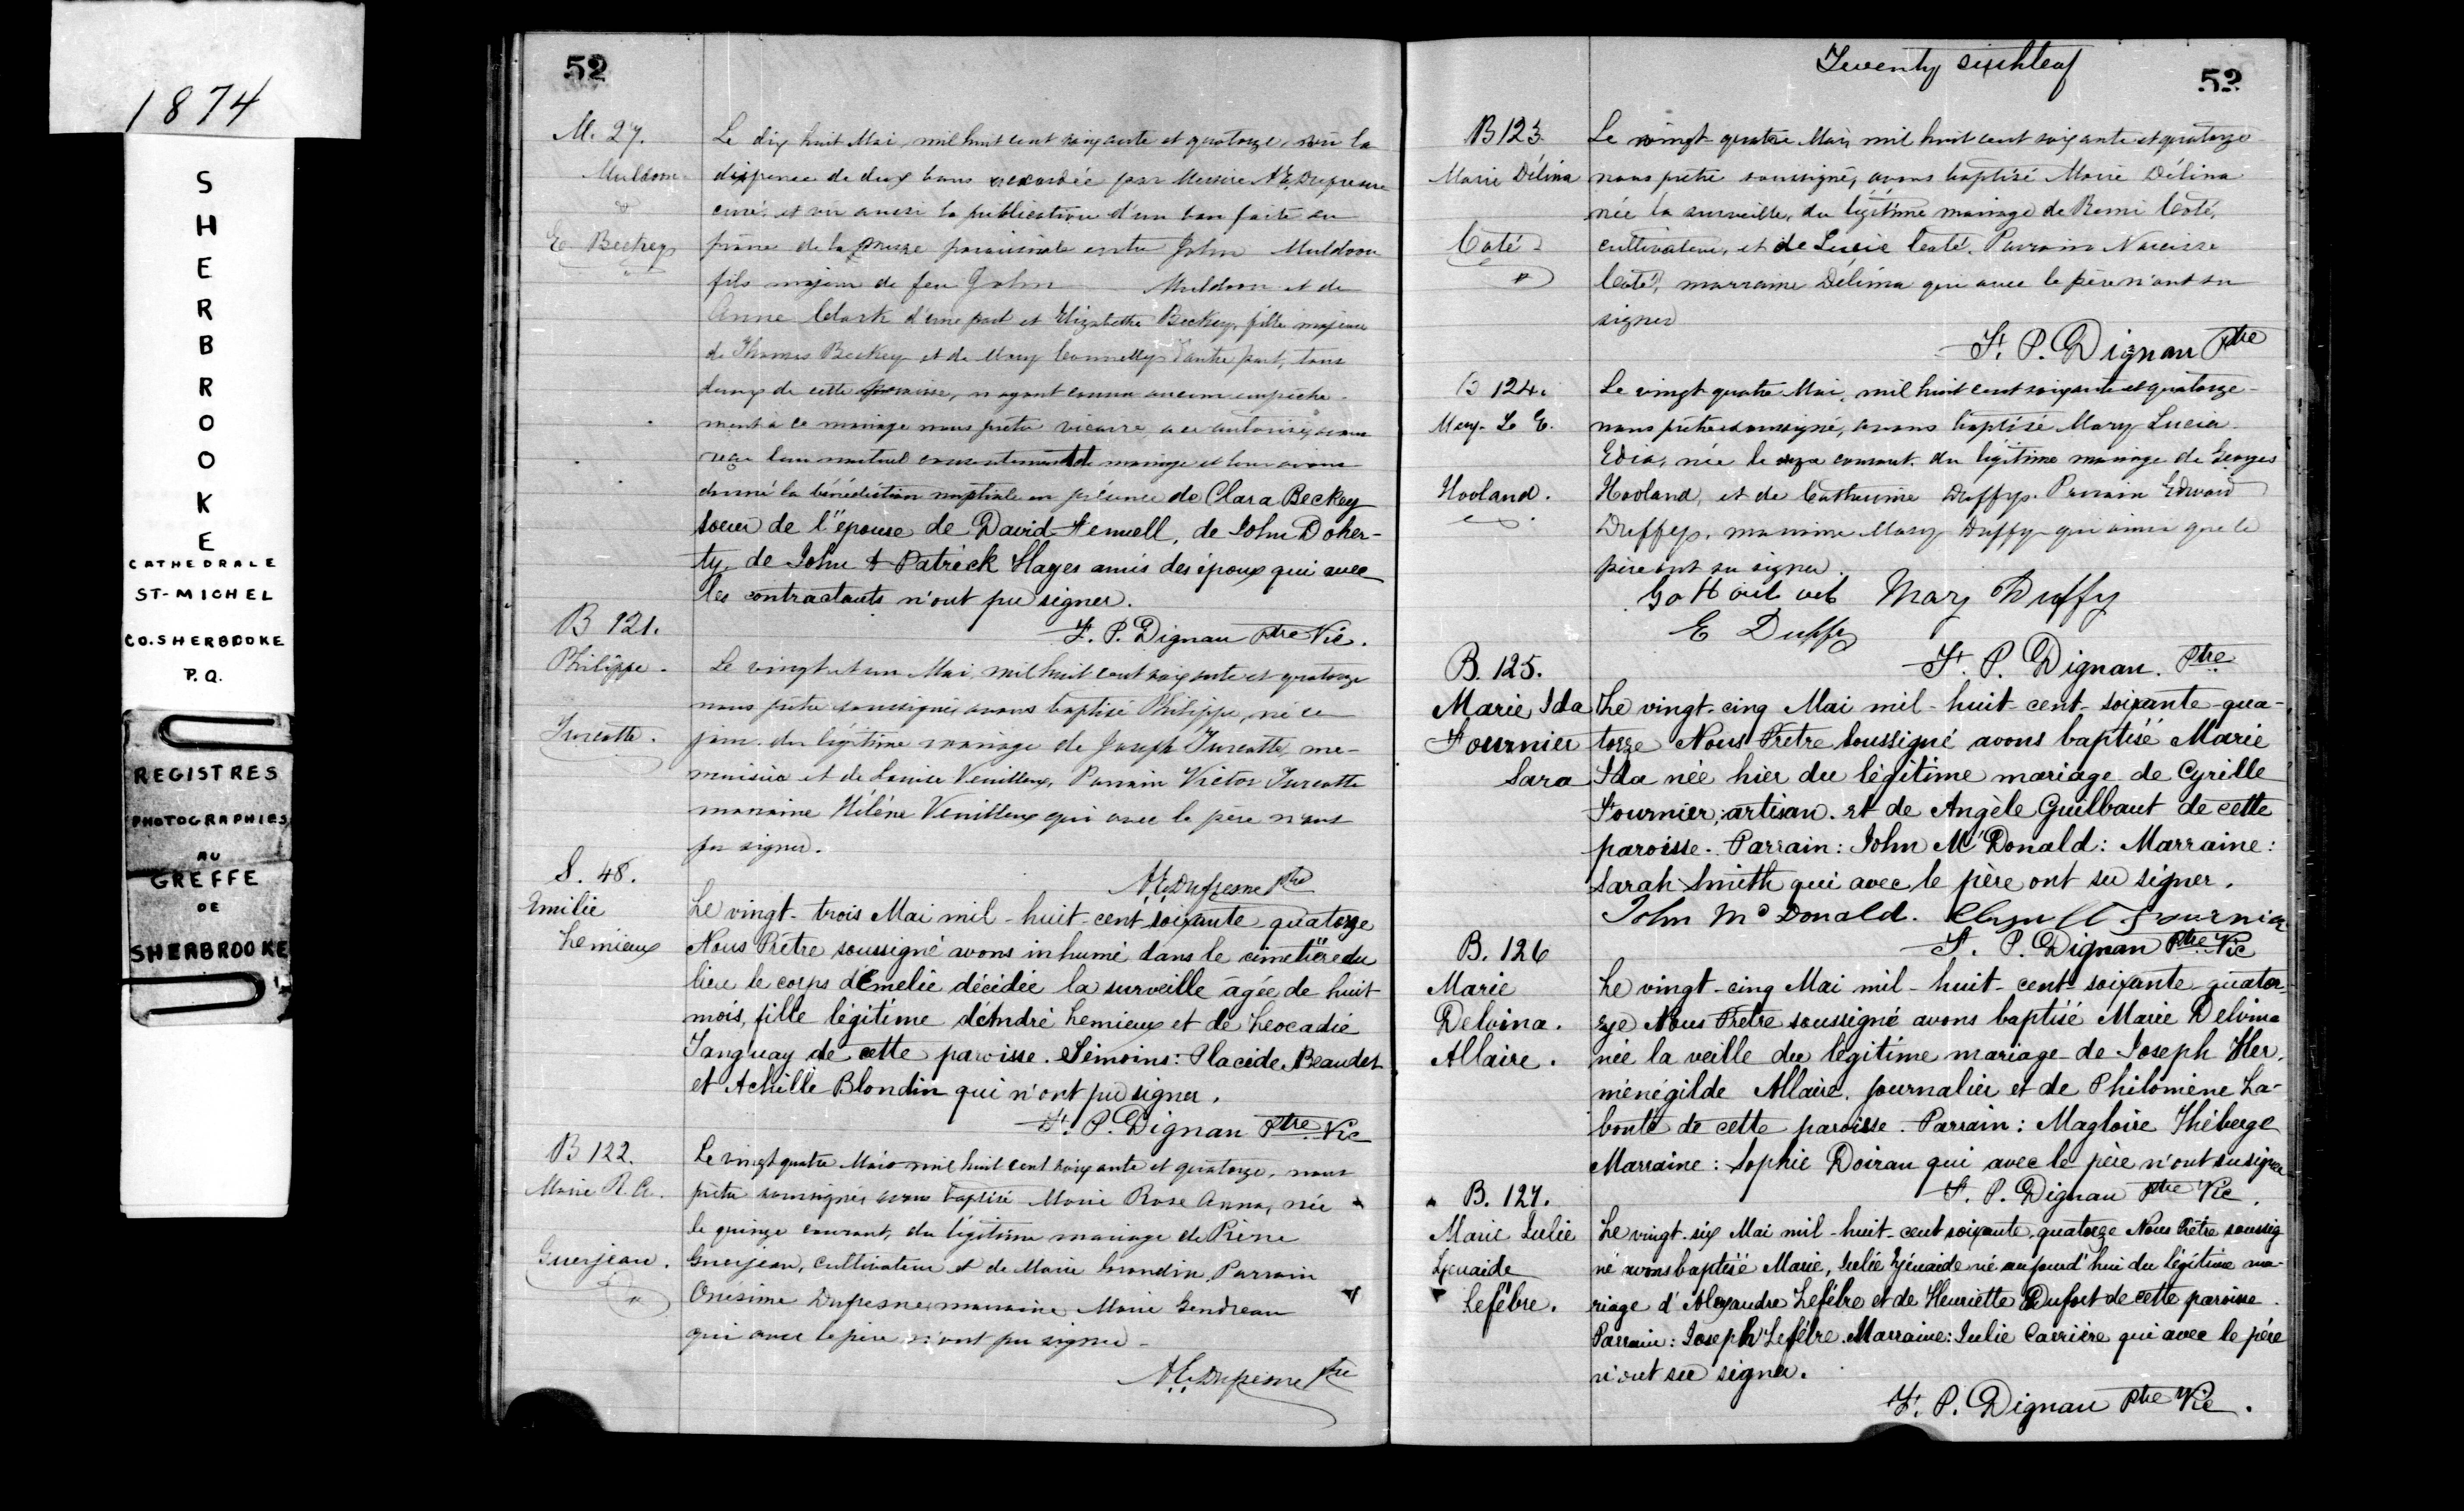 1874
SHERBROOKE
CATHEDRALE
ST-MICHEL
CO. SHERBROOKE
P.Q.
REGISTRES
PHOTOGRAPHIES
AU
GREFFE
DE
SHERBROOKE
52
M. 27.
Muldoon
&
E Beckey
Le dix huit Mai, mil huit cent soixante et quatorze, vu la
dispense de deux bans accordée par Messire A E Dufresne
curé, et vu aussi la publication d'un ban faite au
prône de la messe paroissiale entre John Muldoon
fils majeur de feu John Muldoon et de
Anne Clark d'une part et Elizabeth Beckey, fille majeure
de Thomas Beckey et de Mary Connelly d'autre part, tous
deux de cette paroisse, n'ayant connu aucun empêche-
ment à ce mariage nous prêtre vicaire, a ce autorisé, avons
reçu leur mutuel consentement de mariage et leur avons
donné la bénédiction nuptiale en présence de Clara Beckey
soeur de l'épouse de David Fennell, de John Doher-
ty, de John & Patrick Hayes amis des époux qui avec
les contractants n'ont pu signer.
F. P. Dignan Ptre Vic.
B 121.
Philippe.
Turcotte.
Le vingt et un Mai, mil huit cent soixante et quatorze
nous prêtre soussigné, avons baptisé Philippe, né ce
jour du légitime mariage de Joseph Turcotte, me-
nuisier et de Louise Veuilleux, Parrain Victor Turcotte
marraine Hélène Veuilleux qui avec le père n'ont
pu signer.
A E. Dufresne Ptre
S. 48.
Emilie
Lemieux
Le vingt-trois Mai mil-huit-cent soixante quatorze
Nous Prêtre soussigné avons inhumé dans le cimetière du
lieu le corps d'Emelie décédée la surveille âgée de huit
mois, fille légitime d'André Lemieux et de Leocadie
Tanguay de cette paroisse. Témoins: Placide Beaudet
et Achille Blondin qui n'ont pu signer.
F. P. Dignan Ptre Vic
B 122.
Marie R. A.
Guerjean.
Le vingt quatre Mai mil huit cent soixante et quatorze, nous
prêtre soussigné, avons baptisé Marie Rose Anna, née
le quinze courant, du légitime mariage de Pierre
Guerjean, cultivateur et de Marie Grondin, Parrain
Onésime Dufresne, marraine Marie Gendreau
qui avec le père n'ont pu signer-
A E. Dufresne Ptre
Twenty sixth leaf
53
B 123.
Marie Délina
Coté
Le vingt-quatre Mai, mil huit cent soixante et quatorze
nous prêtre soussigné, avons baptisé Marie Délina
née la surveille, du légitime mariage de Remi Coté,
cultivateur, et de Lucie Coté. Parrain Narcisse
Coté, marraine Délima qui avec le père n'ont su
signer
F. P. Dignan Ptre
B 124.
Mary L E.
Hooland.
Le vingt quatre Mai, mil huit cent soixante et quatorze
nous prêtre soussigné, avons baptisé Mary Lucia
Edia, née le courant, du légitime mariage de Georges
Hooland, et de Catherine Duffy. Parrain Edward
Duffey, marraine Mary Duffy qui ainsi que le
père ont su signer.
Mary Duffy
E Duffy
F. P. Dignan. Ptre
B. 125.
Marie Ida
Fournier
Sara
Le vingt-cinq Mai mil-huit-cent-soixante-qua-
torze Nous Prêtre Soussigné avons baptisé Marie
Ida née hier du légitime mariage de Cyrille
Fournier, artisan. et de Angèle Guilbaut de cette
paroisse. Parrain: John McDonald: Marraine:
Sarah Smith qui avec le père ont su signer.
John McDonald. Fournier
F. P. Dignan Ptre Vic
B. 126
Marie
Delvina.
Allaire.
Le vingt-cinq Mai mil-huit-cent-soixante-quator-
ze Nous Prêtre soussigné avons baptisé Marie Delvina
née la veille du légitime mariage de Joseph Her.
ménégilde Allaire, journalier et de Philomène La-
bonté de cette paroisse. Parrain: Magloire Théberge
Marraine: Sophie Doiran qui avec le père n'ont su signer
F. P. Dignan Ptre Vic.
B. 127.
Marie Julie
Zénaide
Lefèbre.
Le vingt-six Mai mil-huit-cent soixante quatorze Nous Prêtre soussig
né avons baptisé Marie, Julie Zénaide né aujourd'hui du légitime ma-
riage d'Alexandre Lefèbre et de Henriette Dufort de cette paroisse.
Parrain: Joseph Lefèbre. Marraine: Julie Carrière qui avec le père
n'ont su signer.
F. P. Dignan Ptre Vic.